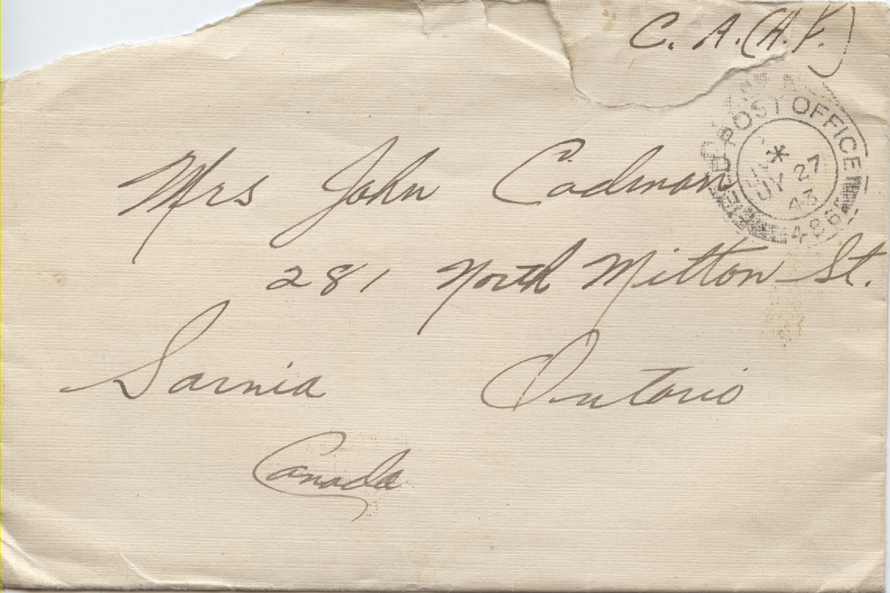 C. A. (A. F.)
FIELD POST OFFICE
JY 27
43
486
Mrs John Cadman
281 North Mitton St.
Sarnia Ontario
Canada